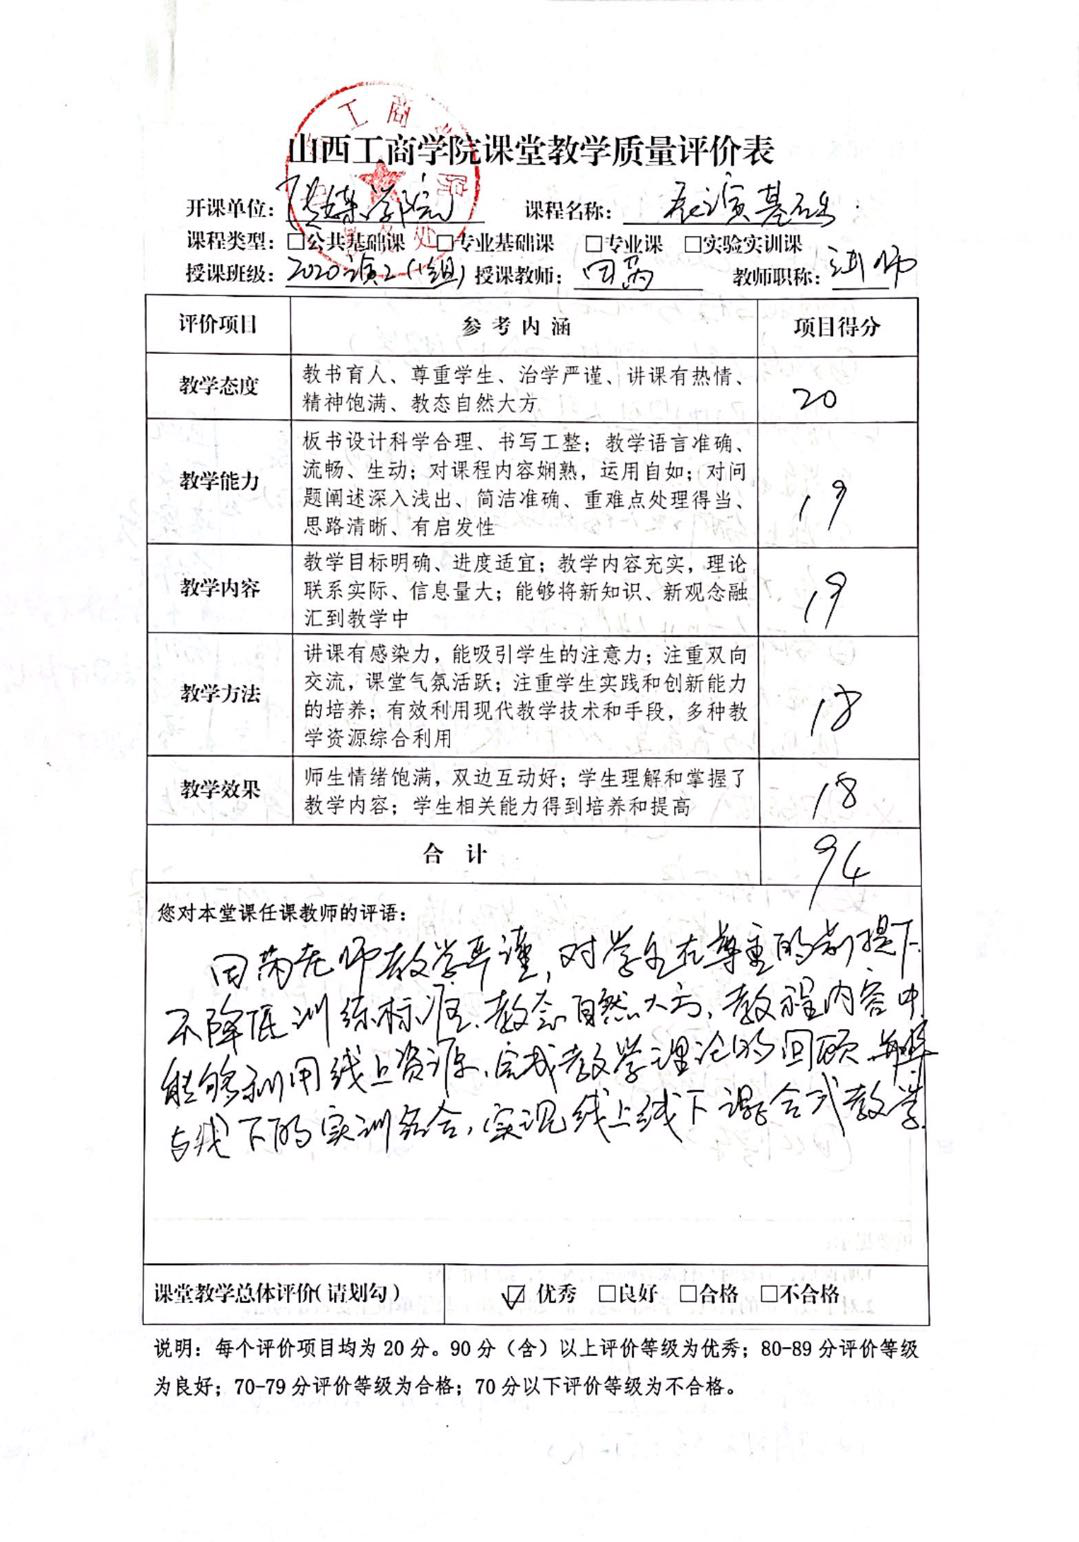 山西工商学院课堂教学质量评价表
开课单位：传媒学院 课程名称：表演基础
课程类型：□公共基础课 □专业基础课 □专业课 □实验实训课
授课班级：2020表演2(1组) 授课教师：田芮 教师职称：讲师
评价项目 参考内涵 项目得分
教学态度 教书育人、尊重学生、治学严谨、讲课有热情、
精神饱满、教态自然大方 20
教学能力 板书设计科学合理、书写工整；教学语言准确、
流畅、生动；对课程内容娴熟，运用自如；对问
题阐述深入浅出、简洁准确、重难点处理得当、
思路清晰、有启发性 19
教学内容 教学目标明确、进度适宜；教学内容充实，理论
联系实际、信息量大；能够将新知识、新观念融
汇到教学中 19
教学方法 讲课有感染力，能吸引学生的注意力；注重双向
交流，课堂气氛活跃；注重学生实践和创新能力
的培养；有效利用现代教学技术和手段，多种教
学资源综合利用 18
教学效果 师生情绪饱满，双边互动好；学生理解和掌握了
教学内容；学生相关能力得到培养和提高 18
合 计 94
您对本堂课任课教师的评语：
老师教学严谨，对学生在尊重的前提下
不降低训练标准、教态自然大方，教程内容中
能够利用线上资源、完成教学理论的回顾
与线下的实训结合，实现线上线下混合式教学
课堂教学总体评价（请划勾） ☑优秀 □良好 □合格 □不合格
说明：每个评价项目均为20分。90分（含）以上评价等级为优秀；80-89分评价等级
为良好；70-79分评价等级为合格；70分以下评价等级为不合格。